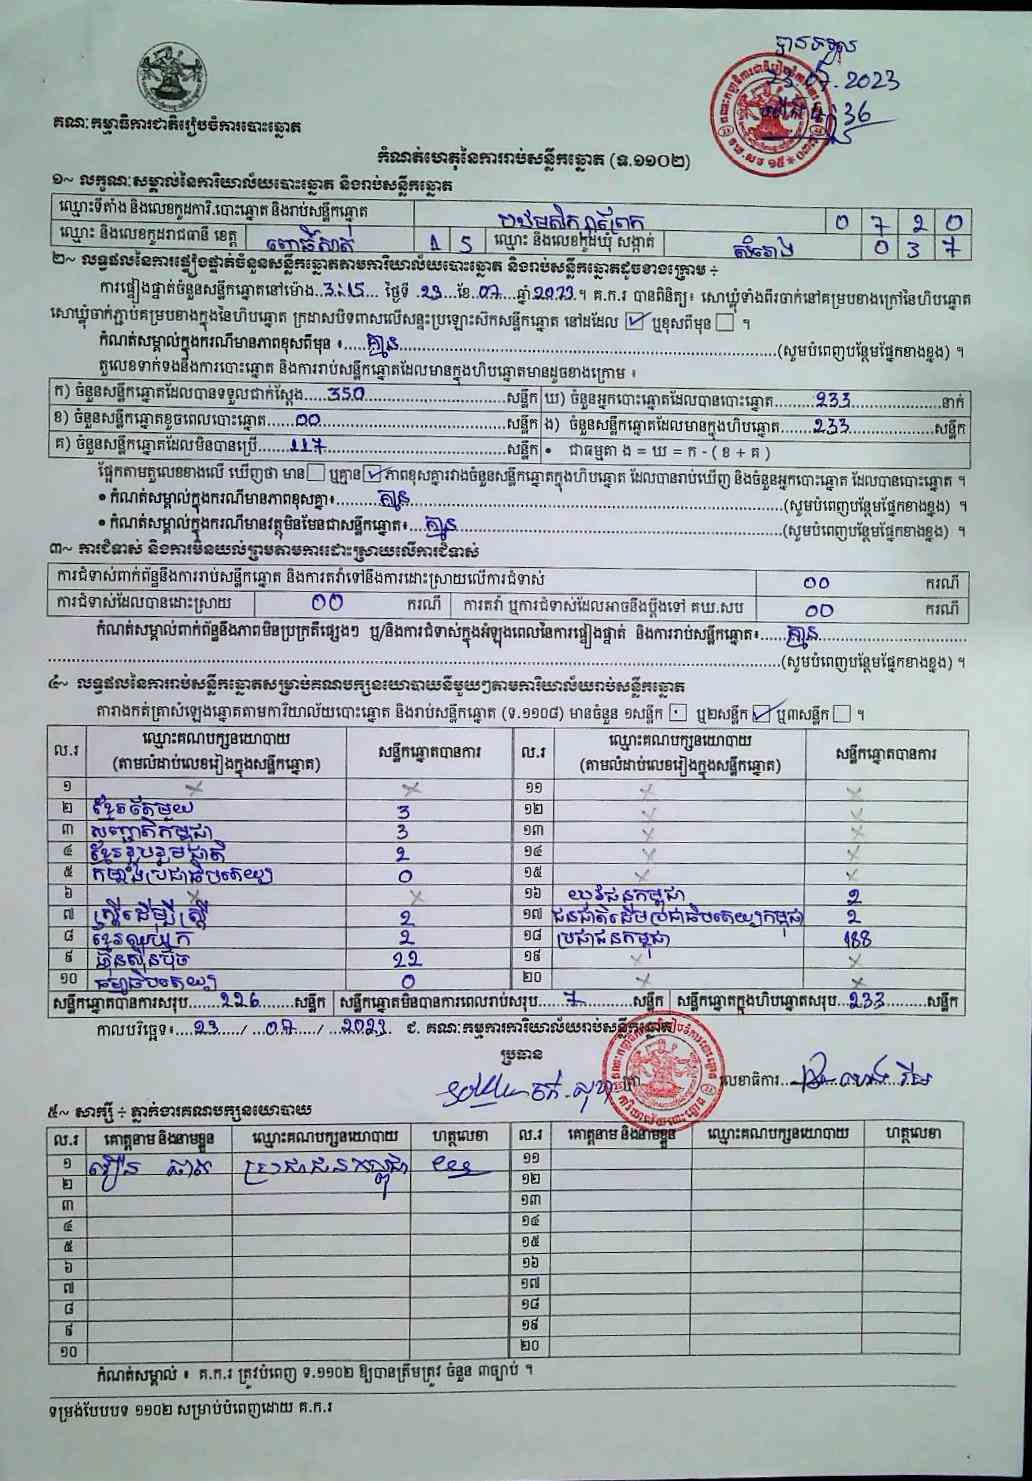 បានទទួល
23.07.2023
ម៉ោង 4:36
គណៈកម្មាធិការជាតិរៀបចំការបោះឆ្នោត
កំណត់ហេតុនៃការរាប់សន្លឹកឆ្នោត (ទ.១១០២)
១~ លក្ខណៈសម្គាល់នៃការិយាល័យបោះឆ្នោត និងរាប់សន្លឹកឆ្នោត
ឈ្មោះទីតាំង និងលេខកូដការិ.បោះឆ្នោត និងរាប់សន្លឹកឆ្នោត 0 7 2 0
ឈ្មោះ និងលេខកូដរាជធានី ខេត្ត ពោធិ៍សាត់ 1 5 ឈ្មោះ និងលេខកូដឃុំ សង្កាត់ សំរោង 0 3 7
២~ លទ្ធផលនៃការផ្ទៀងផ្ទាត់ចំនួនសន្លឹកឆ្នោតតាមការិយាល័យបោះឆ្នោត និងរាប់សន្លឹកឆ្នោតដូចខាងក្រោម ÷
ការផ្ទៀងផ្ទាត់ចំនួនសន្លឹកឆ្នោតនៅម៉ោង..3:15... ថ្ងៃទី .23..ខែ.07..ឆ្នាំ.2023.។ គ.ក.រ បានពិនិត្យ៖ សោឃ្លុំទាំងពីរចាក់នៅគម្របខាងក្រៅនៃហិបឆ្នោត
សោឃ្លុំចាក់ភ្ជាប់គម្របខាងក្នុងនៃហិបឆ្នោត ក្រដាសបិទពាសលើសន្ទះប្រឡោះស៊កសន្លឹកឆ្នោត នៅដដែល ☑ ឬខុសពីមុន ☐ ។
កំណត់សម្គាល់ក្នុងករណីមានភាពខុសពីមុន ៖.....គ្មាន.....(សូមបំពេញបន្ថែមផ្នែកខាងខ្នង) ។
តួលេខទាក់ទងនឹងការបោះឆ្នោត និងការរាប់សន្លឹកឆ្នោតដែលមានក្នុងហិបឆ្នោតមានដូចខាងក្រោម ៖
ក) ចំនួនសន្លឹកឆ្នោតដែលបានទទួលជាក់ស្តែង.....350.....សន្លឹក ឃ) ចំនួនអ្នកបោះឆ្នោតដែលបានបោះឆ្នោត.....233.....នាក់
ខ) ចំនួនសន្លឹកឆ្នោតខូចពេលបោះឆ្នោត.....00.....សន្លឹក ង) ចំនួនសន្លឹកឆ្នោតដែលមានក្នុងហិបឆ្នោត.....233.....សន្លឹក
គ) ចំនួនសន្លឹកឆ្នោតដែលមិនបានប្រើ.....117.....សន្លឹក • ជាធម្មតា ង = ឃ = ក - ( ខ + គ )
ផ្អែកតាមតួលេខខាងលើ ឃើញថា មាន ☐ ឬគ្មាន ☑ ភាពខុសគ្នារវាងចំនួនសន្លឹកឆ្នោតក្នុងហិបឆ្នោត ដែលបានរាប់ឃើញ និងចំនួនអ្នកបោះឆ្នោត ដែលបានបោះឆ្នោត ។
• កំណត់សម្គាល់ក្នុងករណីមានភាពខុសគ្នា៖.....គ្មាន.....(សូមបំពេញបន្ថែមផ្នែកខាងខ្នង) ។
• កំណត់សម្គាល់ក្នុងករណីមានវត្ថុមិនមែនជាសន្លឹកឆ្នោត៖.....គ្មាន.....(សូមបំពេញបន្ថែមផ្នែកខាងខ្នង) ។
៣~ ការជំទាស់ និងការមិនយល់ព្រមតាមការដោះស្រាយលើការជំទាស់
ការជំទាស់ពាក់ព័ន្ធនឹងការរាប់សន្លឹកឆ្នោត និងការតវ៉ាទៅនឹងការដោះស្រាយលើការជំទាស់ 00 ករណី
ការជំទាស់ដែលបានដោះស្រាយ 00 ករណី ការតវ៉ា ឬការជំទាស់ដែលអាចនឹងប្តឹងទៅ គឃ.សប 00 ករណី
កំណត់សម្គាល់ពាក់ព័ន្ធនឹងភាពមិនប្រក្រតីផ្សេងៗ ឬ/និងការជំទាស់ក្នុងអំឡុងពេលនៃការផ្ទៀងផ្ទាត់ និងការរាប់សន្លឹកឆ្នោត៖.....គ្មាន.....
.....(សូមបំពេញបន្ថែមផ្នែកខាងខ្នង) ។
៤~ លទ្ធផលនៃការរាប់សន្លឹកឆ្នោតសម្រាប់គណបក្សនយោបាយនីមួយៗតាមការិយាល័យរាប់សន្លឹកឆ្នោត
តារាងកត់ត្រាសំឡេងឆ្នោតតាមការិយាល័យបោះឆ្នោត និងរាប់សន្លឹកឆ្នោត (ទ.១១០៨) មានចំនួន ១សន្លឹក ☐ ឬ២សន្លឹក ☑ ឬ៣សន្លឹក ☐ ។
ល.រ ឈ្មោះគណបក្សនយោបាយ (តាមលំដាប់លេខរៀងក្នុងសន្លឹកឆ្នោត) សន្លឹកឆ្នោតបានការ ល.រ ឈ្មោះគណបក្សនយោបាយ (តាមលំដាប់លេខរៀងក្នុងសន្លឹកឆ្នោត) សន្លឹកឆ្នោតបានការ
១ × × ១១ × ×
២ ខ្មែរតែមួយ 3 ១២ × ×
៣ សញ្ជាតិកម្ពុជា 3 ១៣ × ×
៤ ខ្មែររួបរួមជាតិ 2 ១៤ × ×
៥ កម្លាំងប្រជាធិបតេយ្យ 0 ១៥ × ×
៦ × × ១៦ យុវជនកម្ពុជា 2
៧ ស្ត្រីដើម្បីស្ត្រី 2 ១៧ ជនជាតិដើមប្រជាធិបតេយ្យកម្ពុជា 2
៨ ខ្មែរឈប់ក្រ 2 ១៨ ប្រជាជនកម្ពុជា 188
៩ ហ្វ៊ុនស៊ិនប៉ិច 22 ១៩ × ×
១០ ធម្មាធិបតេយ្យ 0 ២០ × ×
សន្លឹកឆ្នោតបានការសរុប.....226.....សន្លឹក សន្លឹកឆ្នោតមិនបានការពេលរាប់សរុប.....7.....សន្លឹក សន្លឹកឆ្នោតក្នុងហិបឆ្នោតសរុប..233.....សន្លឹក
កាលបរិច្ឆេទ៖...23..../...07..../...2023. ជ. គណៈកម្មការការិយាល័យរាប់សន្លឹកឆ្នោត
ប្រធាន
លេខាធិការ
៥~ សាក្សី ÷ ភ្នាក់ងារគណបក្សនយោបាយ
ល.រ គោត្តនាម និងនាមខ្លួន ឈ្មោះគណបក្សនយោបាយ ហត្ថលេខា ល.រ គោត្តនាម និងនាមខ្លួន ឈ្មោះគណបក្សនយោបាយ ហត្ថលេខា
១ ប្រជាជនកម្ពុជា ១១
២ ១២
៣ ១៣
៤ ១៤
៥ ១៥
៦ ១៦
៧ ១៧
៨ ១៨
៩ ១៩
១០ ២០
កំណត់សម្គាល់ ៖ គ.ក.រ ត្រូវបំពេញ ទ.១១០២ ឱ្យបានត្រឹមត្រូវ ចំនួន ៣ច្បាប់ ។
ទម្រង់បែបបទ ១១០២ សម្រាប់បំពេញដោយ គ.ក.រ